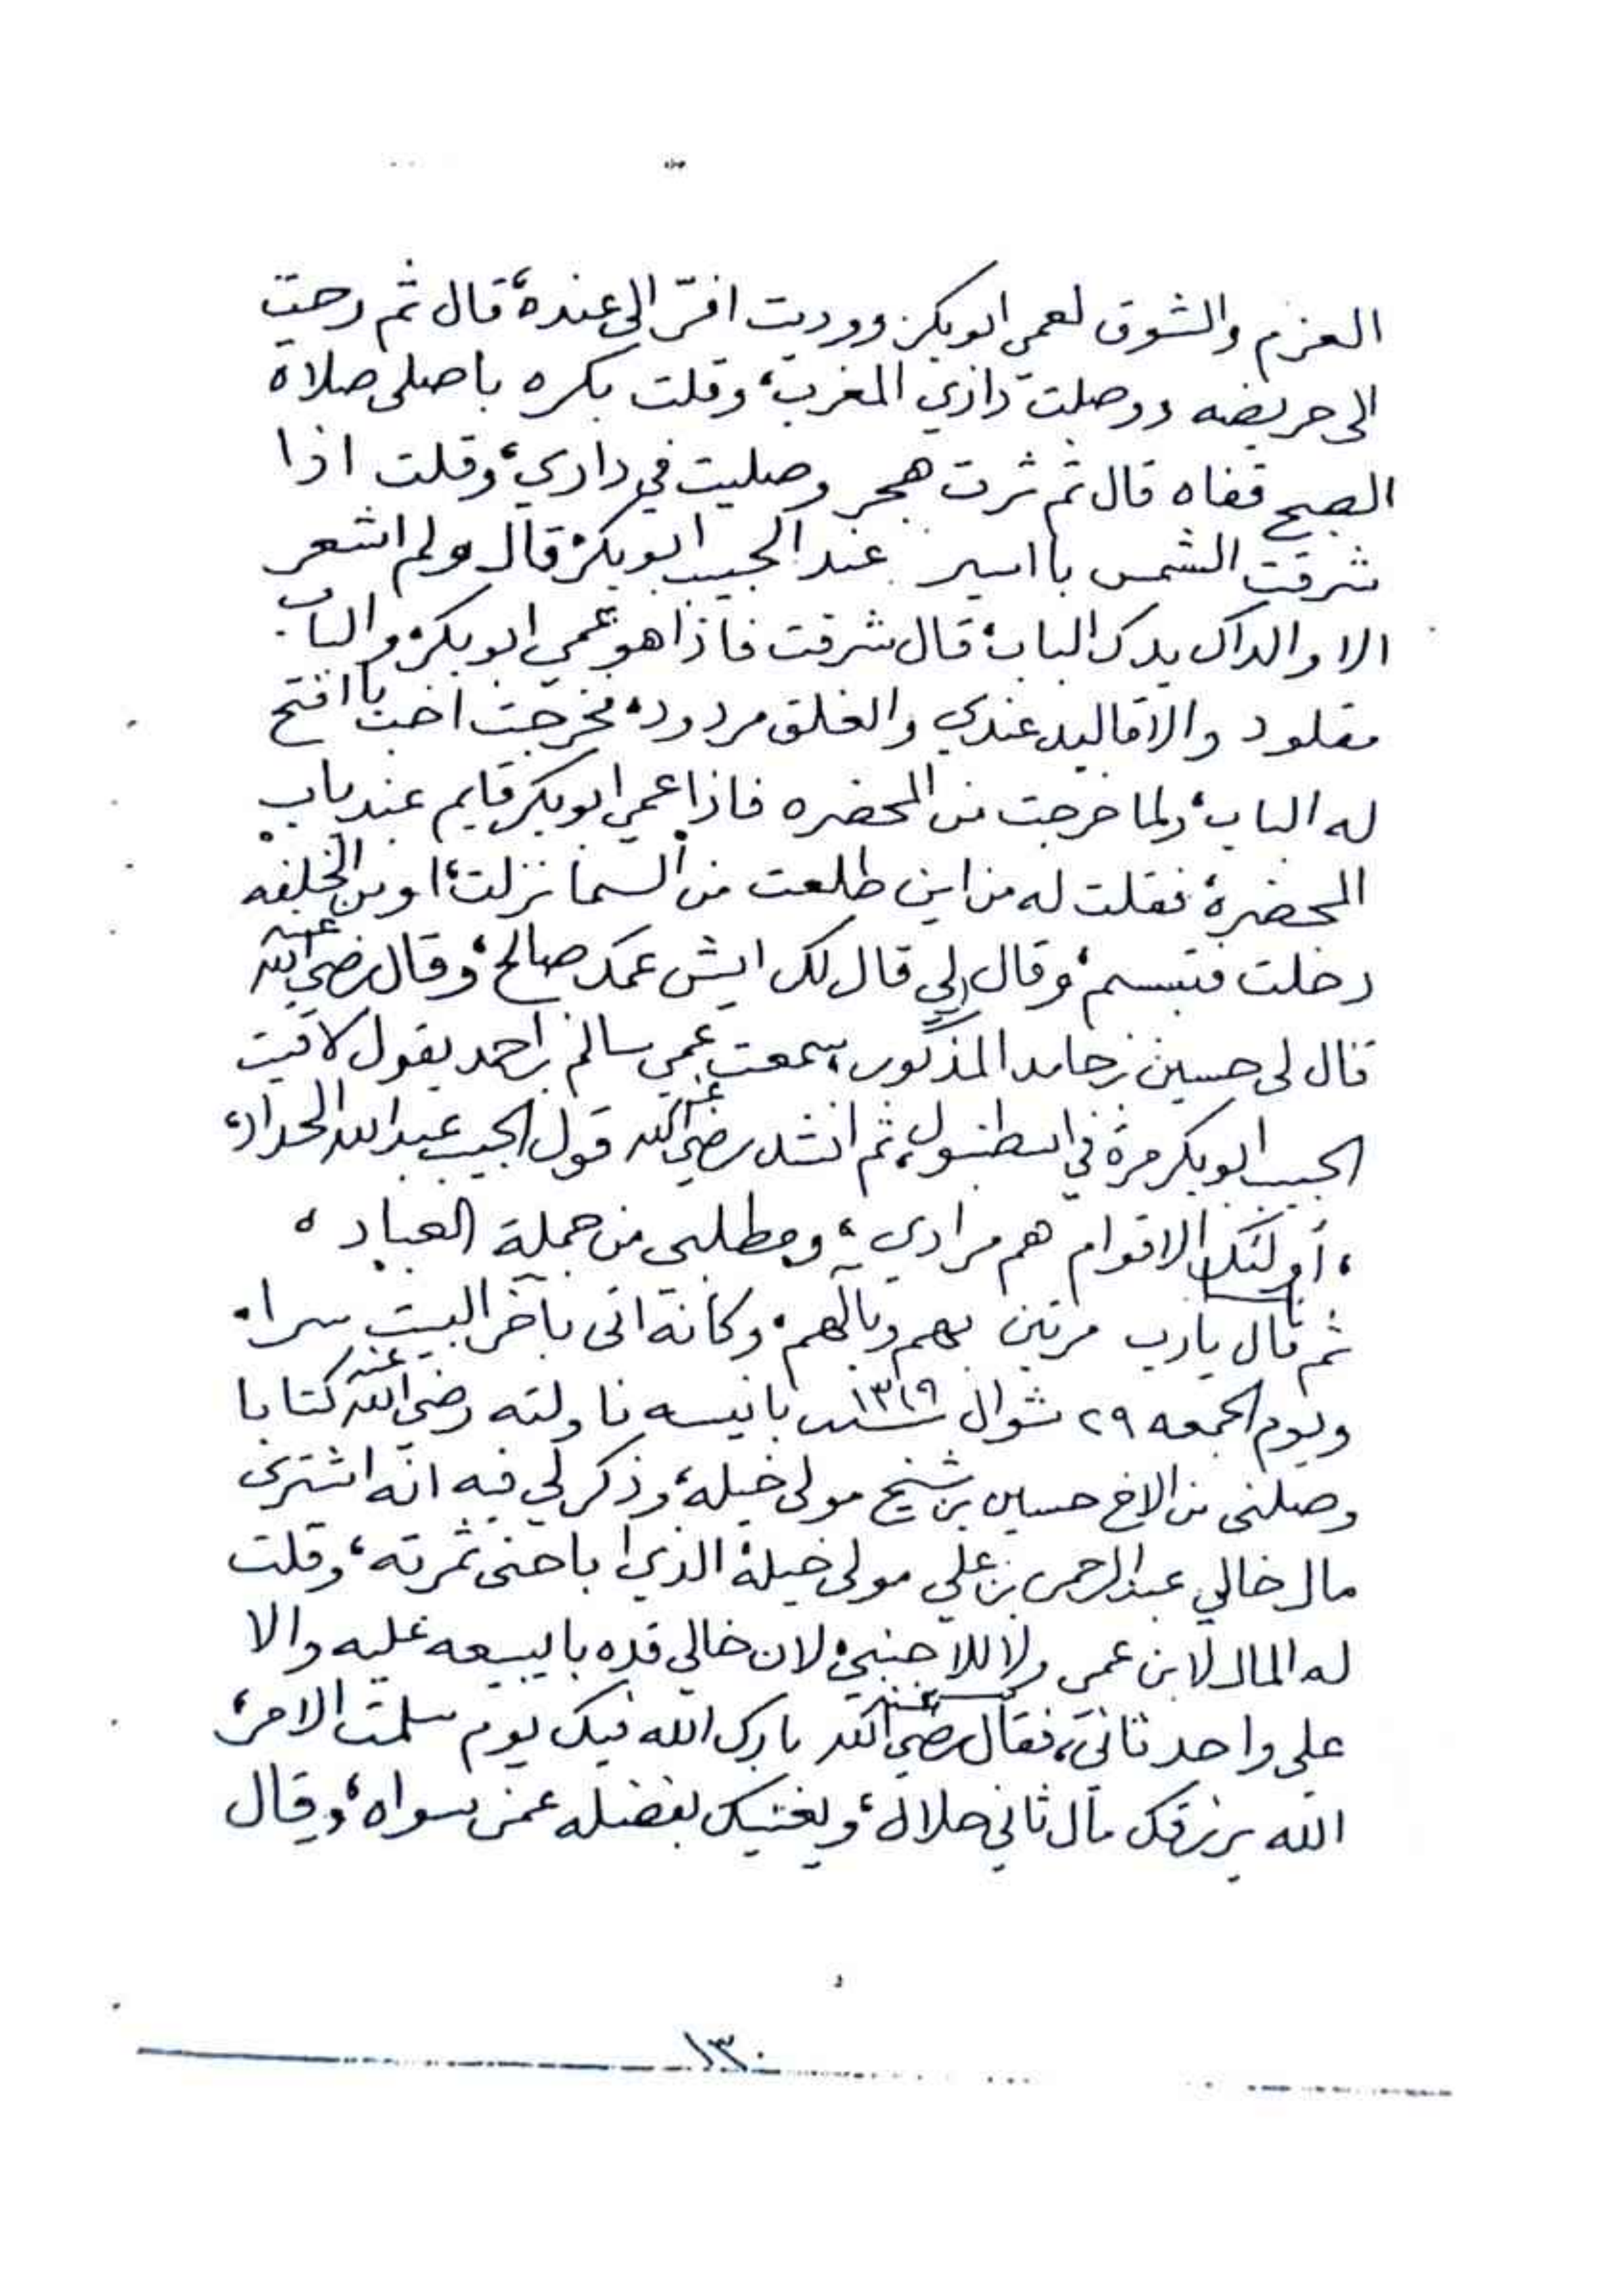 العزم والشوق لعمي ابوبكر ووديت افرّ الى عنده، قال ثم رحت
الى حريضه ووصلت داري المغرب، وقلت بكره باصلى صلاة
الصبح قفاه قال ثم ثرت هجر وصليت في داري، وقلت اذا
شرقت الشمس بااسير عند الحبيب ابوبكر، قال ولم اشعر
الا والداك يدك الباب، قال شرفت فاذا هو عمي ابوبكر، والباب
مقلود والاقاليد عندي والغلق مردود، فخرجت اخب باافتح
له الباب، ولما خرجت من المحضره فاذا عمي ابوبكر قايم عند باب
المحضره، فقلت له من اين طلعت من السما نزلت، او من الخلفه
دخلت فتبسم، وقال لي قال لك ايش عمك صالح، وقال رضي الله عنه
قال لى حسين بن حامد المذكور، سمعت عمي سالم بن احمد يقول لاقيت
الحبيب ابوبكر مرة في اسطنبول، ثم انشد رضي الله عنه قول الحبيب عبدالله الحداد،
، أولئك الاقوام هم مرادي ، ومطلبى من جملة العباد ،
ثم قال يارب مرتين بهم وبآلهم، وكانه اتى بآخر البيت سرا،
ويوم الجمعه ٢٩ شوال سنة ١٣١٩ بانيسه ناولته رضي الله عنه كتابا
وصلنى من الاخ حسين بن شيخ مولى خيله، وذكر لي فيه انه اشترى
مال خالي عبدالرحمن بن علي مولى خيلة الذي باحنى ثمرته، وقلت
له المال لابن عمي ولا للاجنبي، لان خالي قده بايبيعه عليه والا
على واحد ثاني، فقال رضي الله عنه بارك الله فيك يوم سلمت الامر،
الله يرزقك مال ثاني حلال، ويغنيك بفضله عمن سواه، وقال
١٣٠